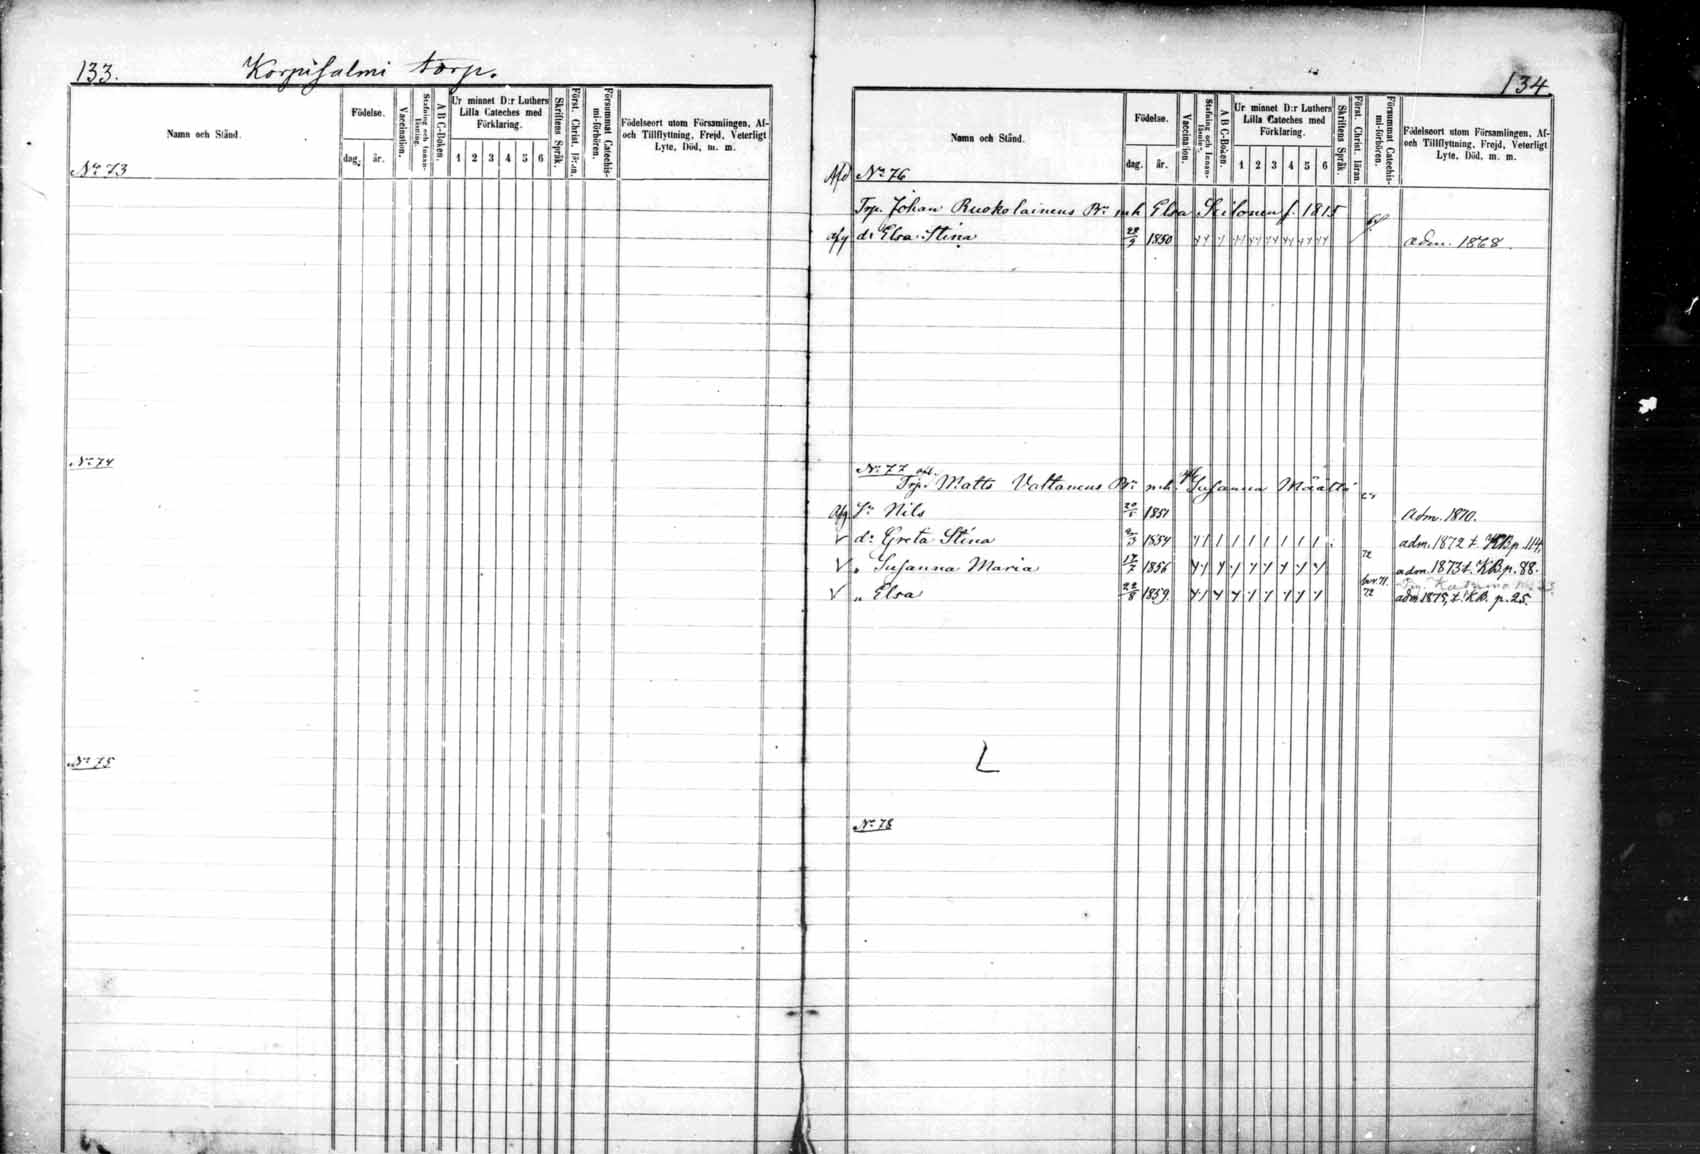 133. Korpisalmi torp.
Namn och Stånd.
Födelse.
dag. år.
Vaccination.
Stafning och Innanläsning.
A B C-Boken.
Ur minnet D:r Luthers Lilla Cateches med Förklaring.
1 2 3 4 5 6
Skriftens Språk.
Först. Christ. läran.
Försummat Catechismi-förhören.
Födelseort utom Församlingen, Af- och Tillflyttning, Frejd, Veterligt Lyte, Död, m. m.
No 73
No 74
No 75
134.
Namn och Stånd.
Födelse.
dag. år.
Vaccination.
Stafning och Innanläsning.
A B C-Boken.
Ur minnet D:r Luthers Lilla Cateches med Förklaring.
1 2 3 4 5 6
Skriftens Språk.
Först. Christ. läran.
Försummat Catechismi-förhören.
Födelseort utom Församlingen, Af- och Tillflyttning, Frejd, Veterligt Lyte, Död, m. m.
No 76
Trp. Johan Ruokolainens Br. mh Elsa Seilonen f. 1815
afg d: Elsa Stina 1850 adm. 1868.
No 77
Trp. Matts Vattanens Br. m.h. Susanna Määttä
Afg Sn Nils 1851 Adm. 1870.
v d: Greta Stina 9/3 1854 adm. 1872 t. KB p. 114.
v " Susanna Maria 17/7 1856 72 adm. 1873 t. KB p. 88.
v " Elsa 22/8 1859 72 adm 1875, t. KB. p. 25.
No 78